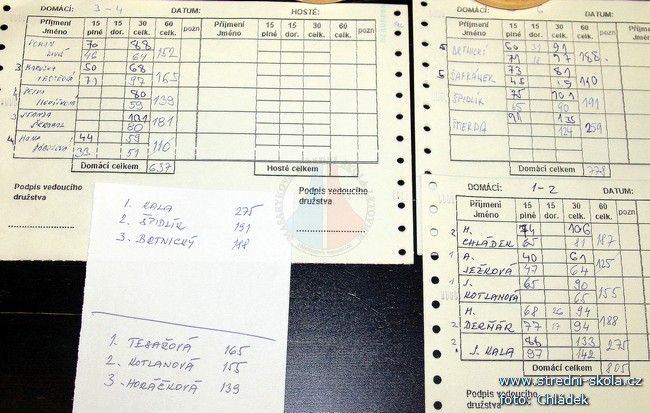 DOMÁCÍ: 3-4 DATUM: HOSTÉ:
Příjmení Jméno 15 plné 15 dor. 30 celk. 60 celk. pozn Příjmení Jméno 15 plné 15 dor. 30 celk. 60 celk. pozn
70 88
46 64 152
3 50 68
71 97 165
80
59 139
3 STANDA 101
80 181
4 HANA 44 59
33 51 110
Domácí celkem 637 Hosté celkem
Podpis vedoucího družstva
Podpis vedoucího družstva
1. KALA 275
2. ŠPIDLÍK 191
3. BRTNICKÝ 188
1. TESAŘOVÁ 165
2. KOTLANOVÁ 155
3. HORÁČKOVÁ 139
Příjmení Jméno 15 plné 15 dor. 30 celk. 60 celk. pozn
6 BRTNICKÍ 91
71 97 188
5 ŠAFRÁNEK 73 81
45
ŠPIDLÍK 75 101
65 90 191
ŠTERDA 135
124 259
Domácí celkem 778
Podpis vedoucího družstva
DOMÁCÍ: 1-2 DATUM:
Příjmení Jméno 15 plné 15 dor. 30 celk. 60 celk. pozn
2 M. CHLÁDEK 74 106
65 81 187
1 A. JEŽKOVÁ 40 61
47 64 125
1 J. KOTLANOVÁ 65 90
65 155
2 M. DERŇÁR 68 26 94
77 17 94 188
2 J. KALA 86 133
97 142 275
Domácí celkem 805
www.stredni-skola.cz
foto: Chládek